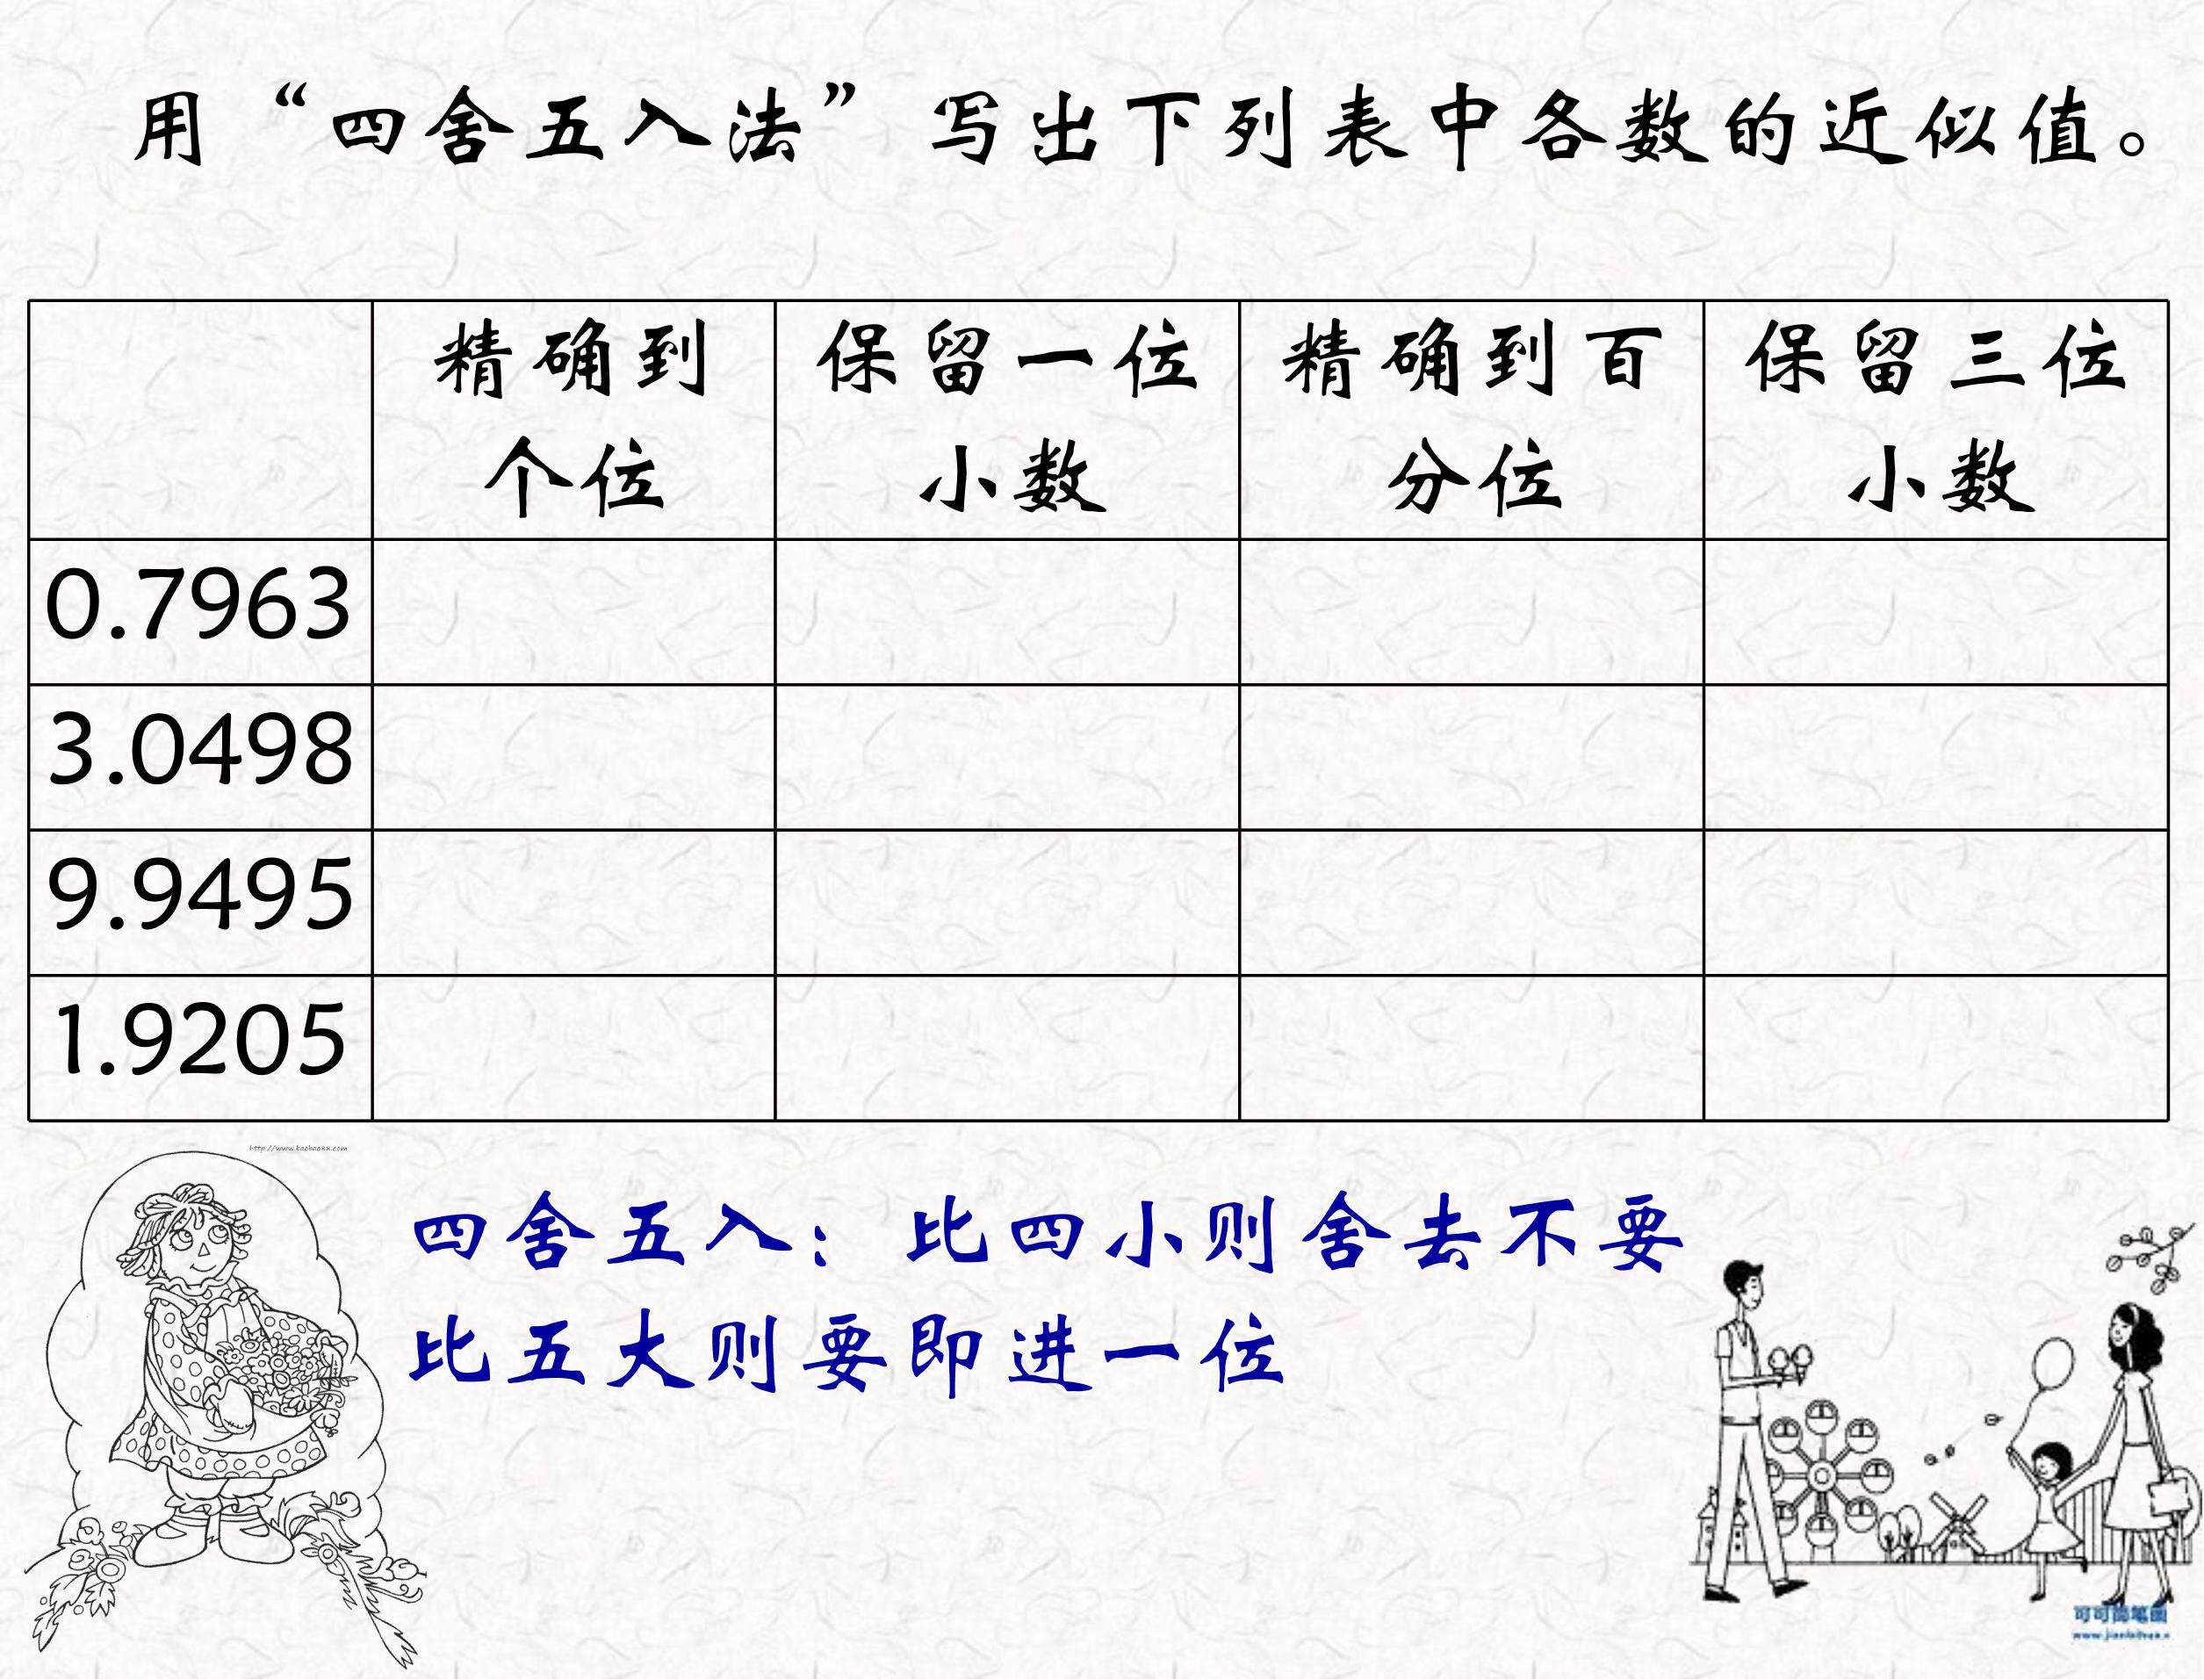 用“四舍五入法”写出下列表中各数的近似值。
精确到
个位
保留一位
小数
精确到百
分位
保留三位
小数
0.7963
3.0498
9.9495
1.9205
四舍五入：比四小则舍去不要
比五大则要即进一位
可可简笔画